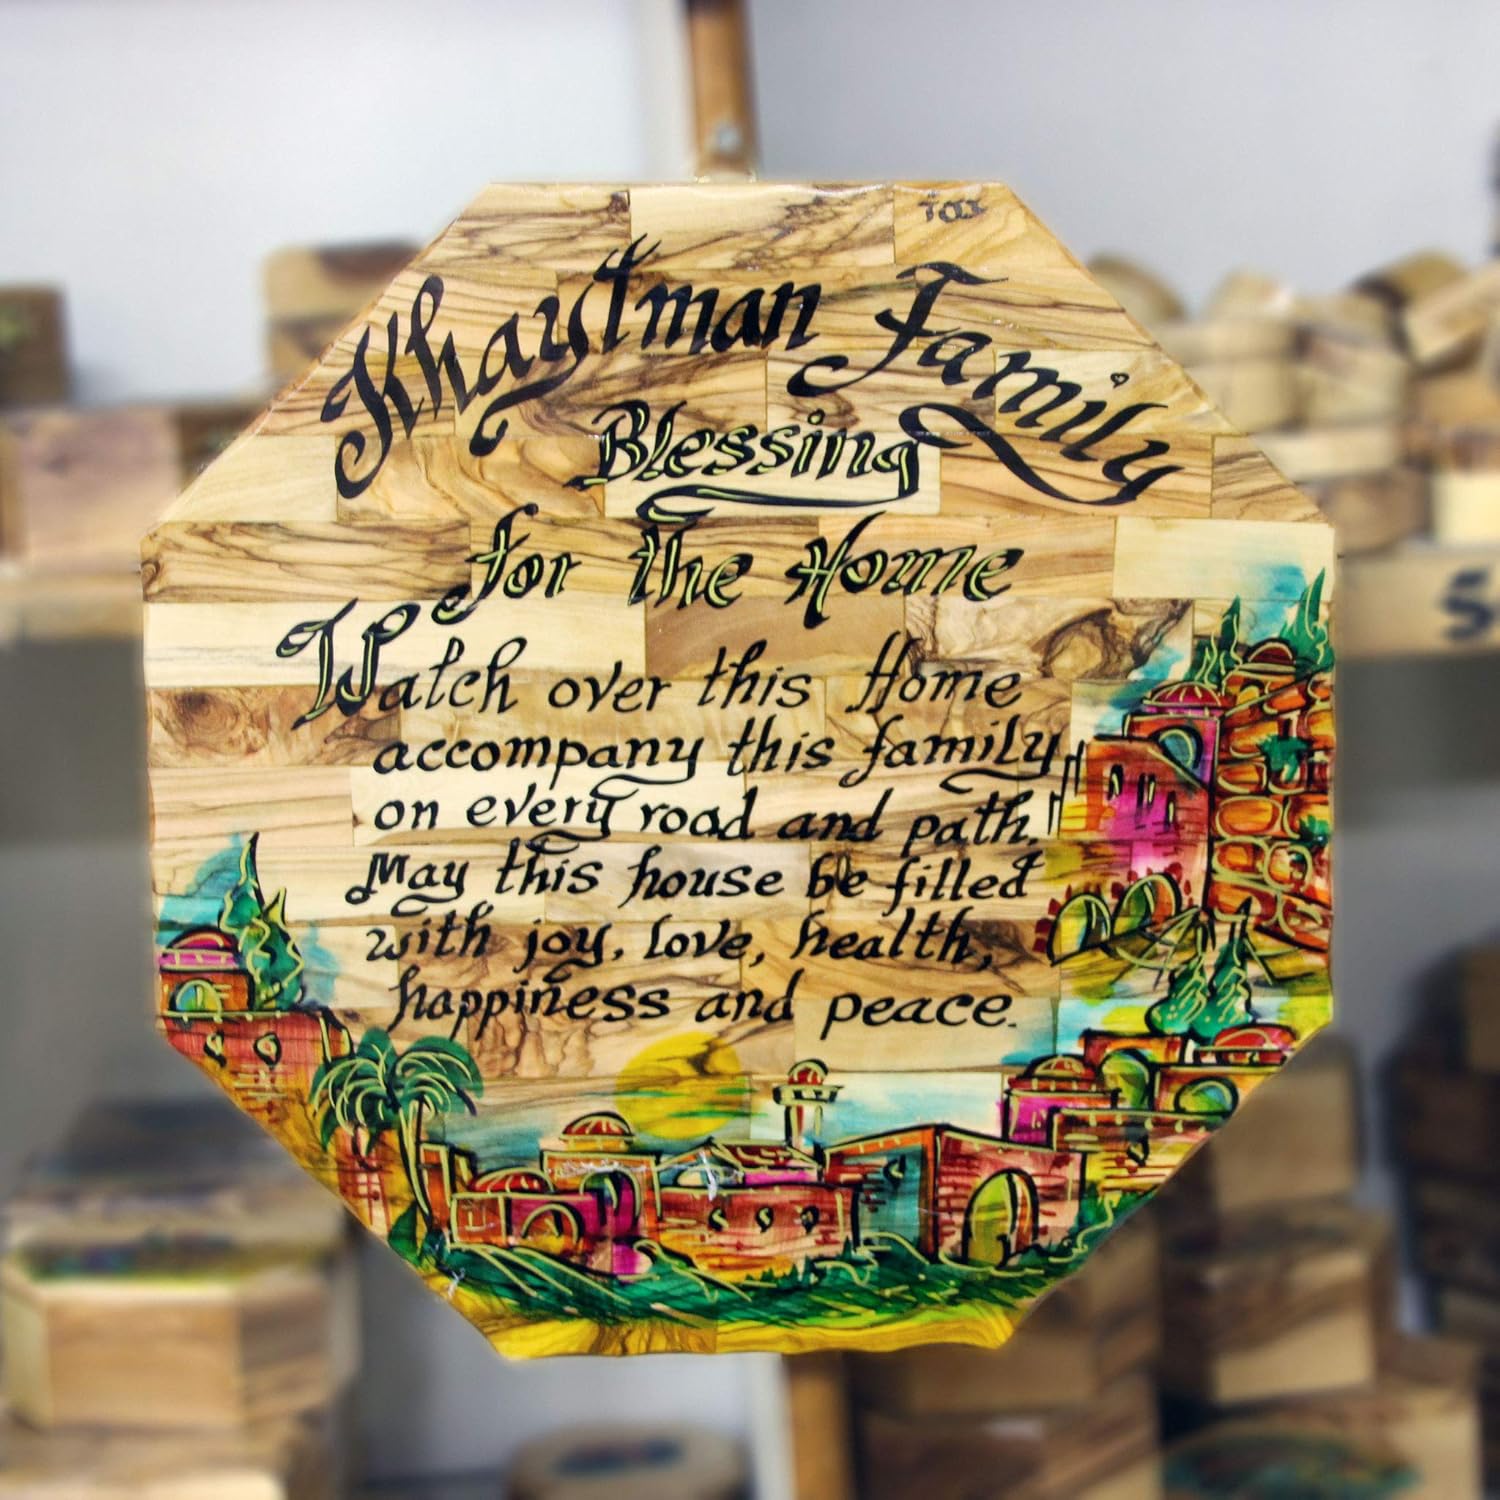 Khaytman Family
Blessing
for the Home
Watch over this Home
accompany this family
on every road and path.
May this house be filled
with joy, love, health,
happiness and peace.